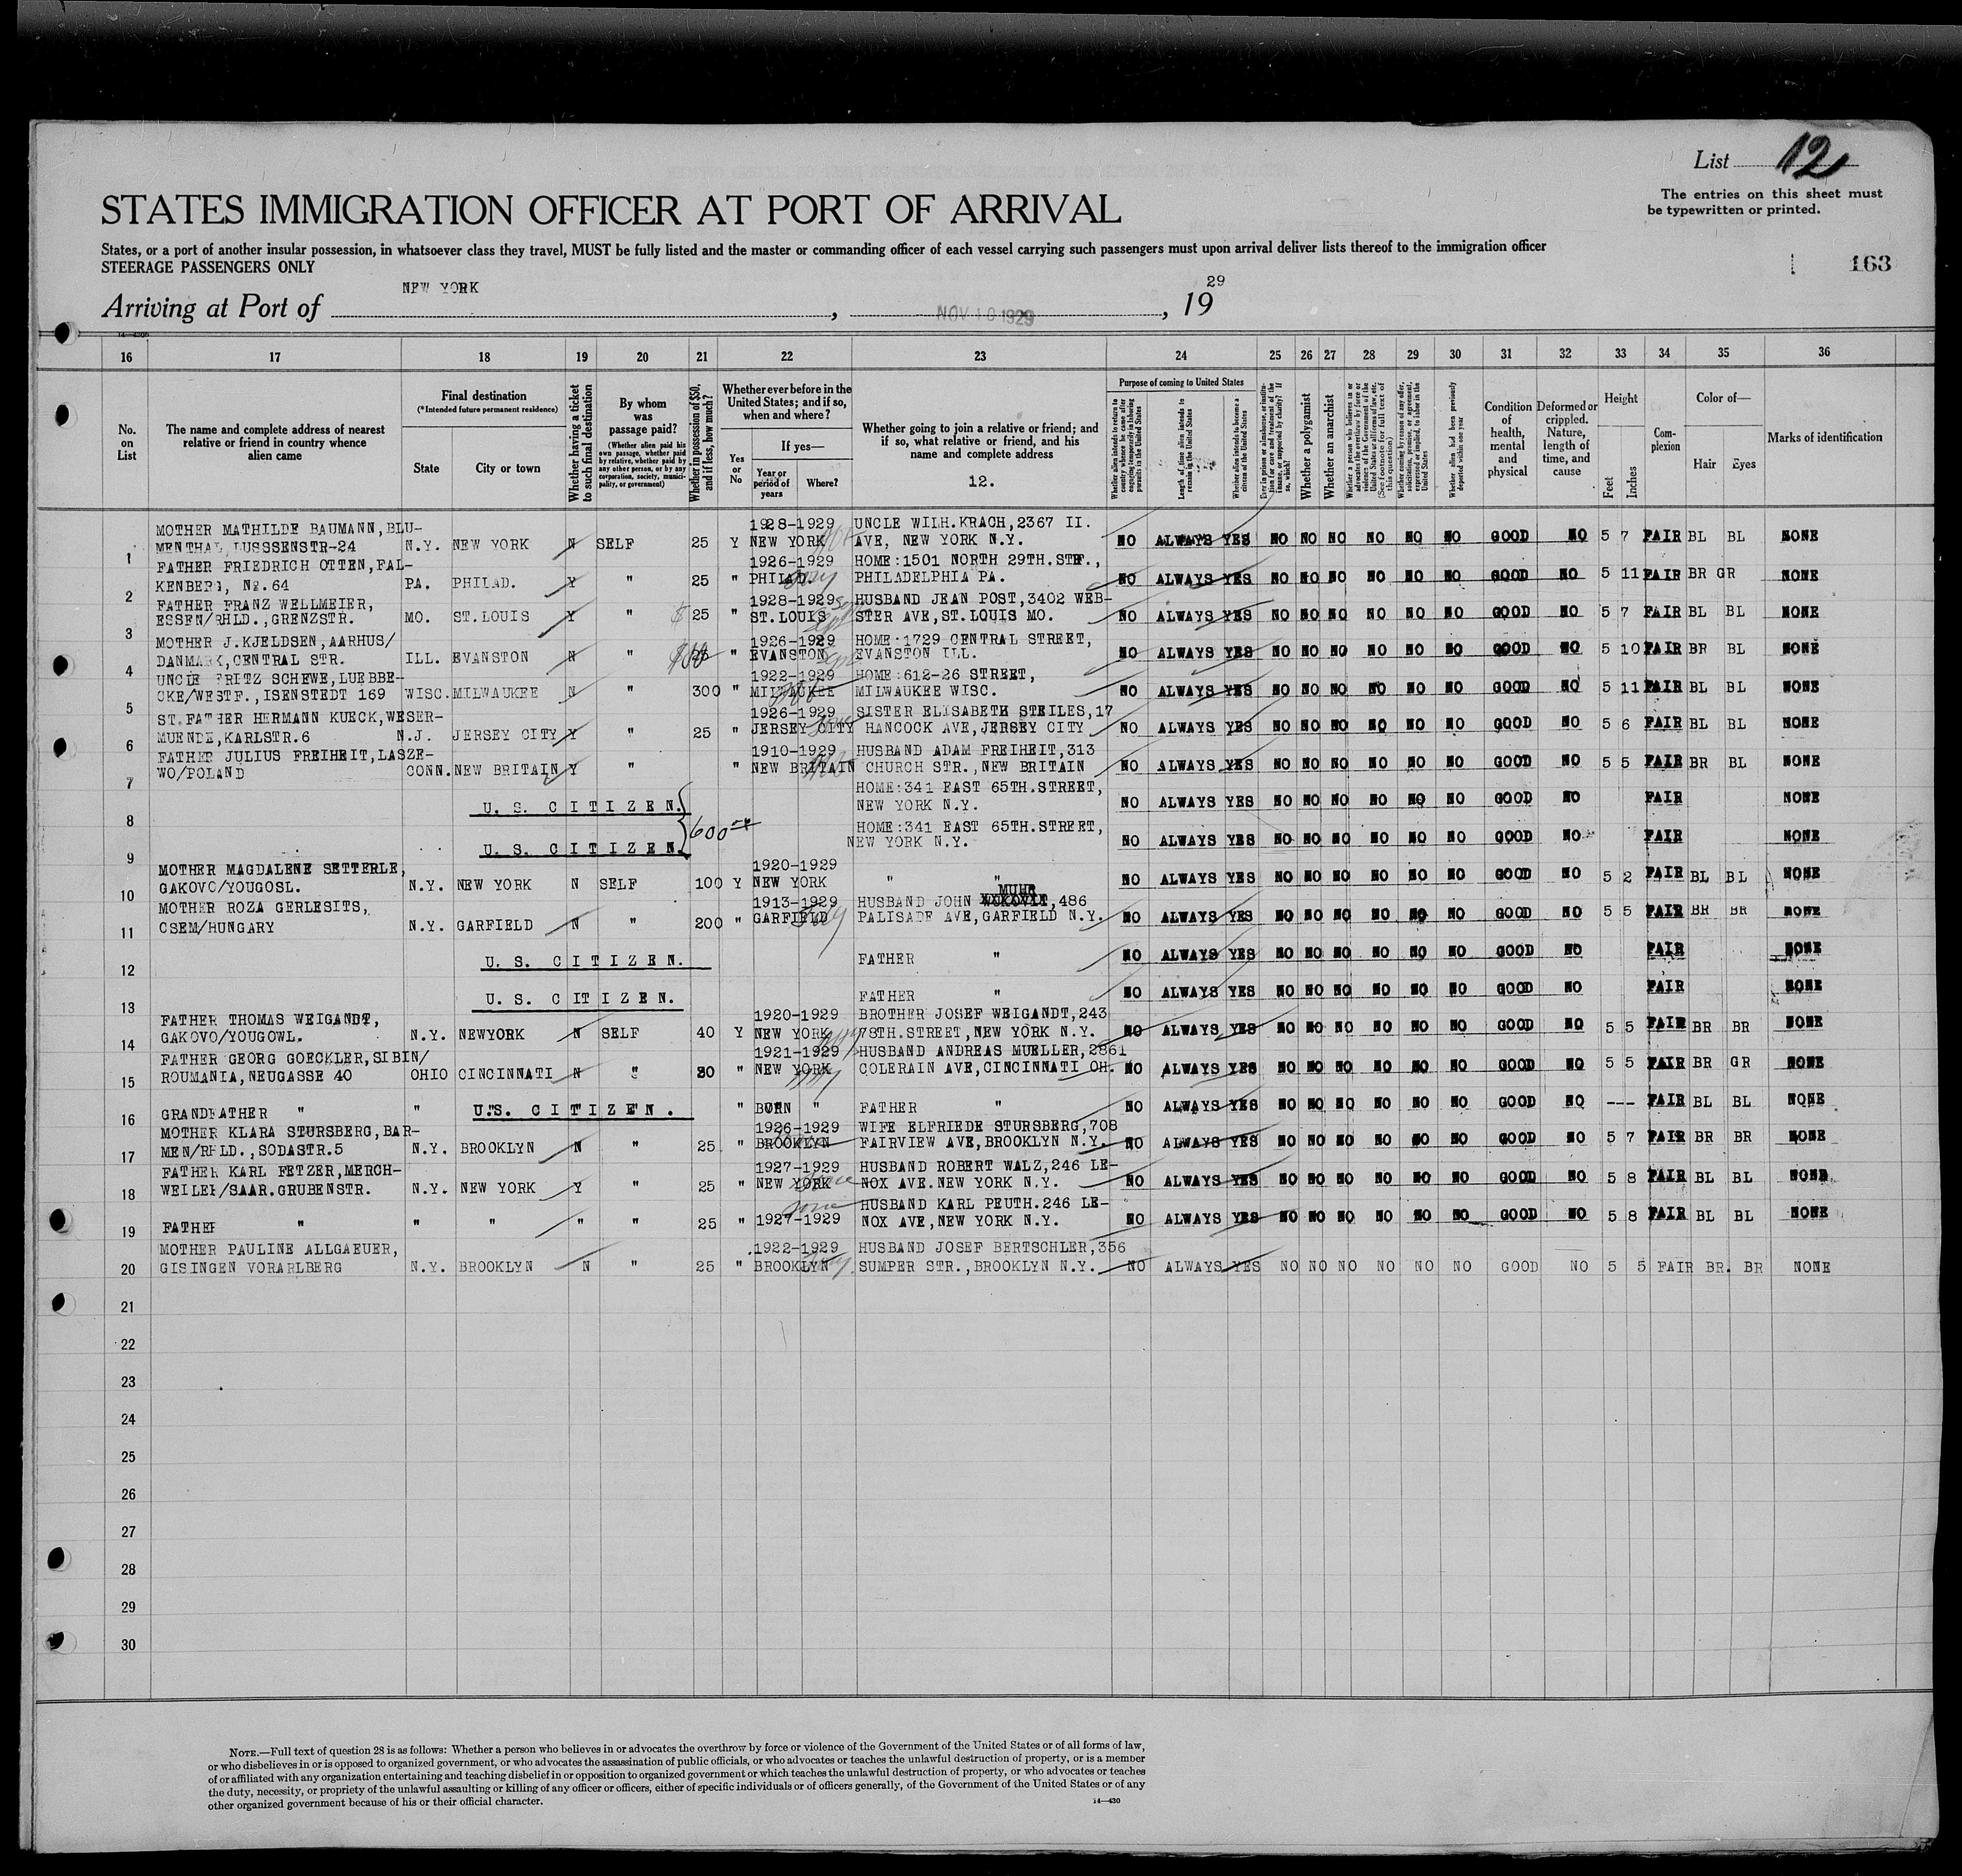 List 12
The entries on this sheet must
be typewritten or printed.
STATES IMMIGRATION OFFICER AT PORT OF ARRIVAL
States, or a port of another insular possession, in whatsoever class they travel, MUST be fully listed and the master or commanding officer of each vessel carrying such passengers must upon arrival deliver lists thereof to the immigration officer
STEERAGE PASSENGERS ONLY
163
Arriving at Port of NEW YORK, NOV 10 1929, 1929
16 17 18 19 20 21 22 23 24 25 26 27 28 29 30 31 32 33 34 35 36
No. on List
The name and complete address of nearest
relative or friend in country whence
alien came
Final destination
(*Intended future permanent residence)
State
City or town
Whether having a ticket
to such final destination
By whom
was
passage paid?
(Whether alien paid his
own passage, whether paid
by relative, whether paid by
any other person, or by any
corporation, society, munici-
pality, or government)
Whether in possession of $50,
and if less, how much?
Whether ever before in the
United States; and if so,
when and where?
Yes
or
No
If yes—
Year or
period of
years
Where?
Whether going to join a relative or friend; and
if so, what relative or friend, and his
name and complete address
12.
Purpose of coming to United States
Length of time alien intends to
remain in the United States
Whether alien intends to become a
citizen of the United States
Whether a polygamist
Whether an anarchist
Whether alien had been previously
deported within one year
Condition
of
health,
mental
and
physical
Deformed or
crippled.
Nature,
length of
time, and
cause
Height
Feet
Inches
Com-
plexion
Color of—
Hair
Eyes
Marks of identification
MOTHER MATHILDE BAUMANN,BLU- 1928-1929 UNCLE WILH.KRACH,2367 II.
1 MENTHAL LUSSSENSTR-24 N.Y. NEW YORK N SELF 25 Y NEW YORK AVE, NEW YORK N.Y. NO ALWAYS YES NO NO NO NO NO NO GOOD NO 5 7 FAIR BL BL NONE
FATHER FRIEDRICH OTTEN,FAL- 1926-1929 HOME:1501 NORTH 29TH.STR.,
2 KENBERG, No.64 PA. PHILAD. Y " 25 " PHILAD. PHILADELPHIA PA. NO ALWAYS YES NO NO NO NO NO NO GOOD NO 5 11 FAIR BR GR NONE
FATHER FRANZ WELLMEIER, 1928-1929 HUSBAND JEAN POST,3402 WEB-
3 ESSEN/RHLD.,GRENZSTR. MO. ST.LOUIS Y " $ 25 " ST.LOUIS STER AVE,ST.LOUIS MO. NO ALWAYS YES NO NO NO NO NO NO GOOD NO 5 7 FAIR BL BL NONE
MOTHER J.KJELDSEN,AARHUS/ 1926-1929 HOME:1729 CENTRAL STREET,
4 DANMARK,CENTRAL STR. ILL. EVANSTON N " " EVANSTON EVANSTON ILL. NO ALWAYS YES NO NO NO NO NO NO GOOD NO 5 10 FAIR BR BL NONE
UNCLE FRITZ SCHEWE,LUEBBE- 1922-1929 HOME:612-26 STREET,
5 CKE/WESTF.,ISENSTEDT 169 WISC. MILWAUKEE N " 300 " MILWAUKEE MILWAUKEE WISC. NO ALWAYS YES NO NO NO NO NO NO GOOD NO 5 11 FAIR BL BL NONE
ST.FATHER HERMANN KUECK,WESER- 1926-1929 SISTER ELISABETH STEILES,17
6 MUENDE,KARLSTR.6 N.J. JERSEY CITY Y " 25 " JERSEY CITY HANCOCK AVE,JERSEY CITY NO ALWAYS YES NO NO NO NO NO NO GOOD NO 5 6 FAIR BL BL NONE
FATHER JULIUS FREIHEIT,LASZE- 1910-1929 HUSBAND ADAM FREIHEIT,313
7 WO/POLAND CONN. NEW BRITAIN Y " " NEW BRITAIN CHURCH STR.,NEW BRITAIN NO ALWAYS YES NO NO NO NO NO NO GOOD NO 5 5 FAIR BR BL NONE
HOME:341 EAST 65TH.STREET,
8 U. S. CITIZEN. NEW YORK N.Y. NO ALWAYS YES NO NO NO NO NO NO GOOD NO FAIR NONE
600
HOME:341 EAST 65TH.STREET,
9 U. S. CITIZEN. NEW YORK N.Y. NO ALWAYS YES NO NO NO NO NO NO GOOD NO FAIR NONE
MOTHER MAGDALENE SETTERLE, 1920-1929
10 GAKOVO/YOUGOSL. N.Y. NEW YORK N SELF 100 Y NEW YORK " " NO ALWAYS YES NO NO NO NO NO NO GOOD NO 5 2 FAIR BL BL NONE
MOTHER ROZA GERLESITS, 1913-1929 HUSBAND JOHN MUHR,486
11 CSEM/HUNGARY N.Y. GARFIELD N " 200 " GARFIELD PALISADE AVE,GARFIELD N.Y. NO ALWAYS YES NO NO NO NO NO NO GOOD NO 5 5 FAIR BR BR NONE
12 U. S. CITIZEN. FATHER " NO ALWAYS YES NO NO NO NO NO NO GOOD NO FAIR NONE
13 U. S. CITIZEN. FATHER " NO ALWAYS YES NO NO NO NO NO NO GOOD NO FAIR NONE
FATHER THOMAS WEIGANDT, 1920-1929 BROTHER JOSEF WEIGANDT,243
14 GAKOVO/YOUGOWL. N.Y. NEWYORK N SELF 40 Y NEW YORK 78TH.STREET,NEW YORK N.Y. NO ALWAYS YES NO NO NO NO NO NO GOOD NO 5 5 FAIR BR BR NONE
FATHER GEORG GOECKLER,SIBIN/ 1921-1929 HUSBAND ANDREAS MUELLER,2861
15 ROUMANIA,NEUGASSE 40 OHIO CINCINNATI N " 30 " NEW YORK COLERAIN AVE,CINCINNATI OH. NO ALWAYS YES NO NO NO NO NO NO GOOD NO 5 5 FAIR BR GR NONE
16 GRANDFATHER " " U.S. CITIZEN. " BORN " FATHER " NO ALWAYS YES NO NO NO NO NO NO GOOD NO --- FAIR BL BL NONE
MOTHER KLARA STURSBERG,BAR- 1926-1929 WIFE ELFRIEDE STURSBERG,708
17 MEN/RHLD.,SODASTR.5 N.Y. BROOKLYN N " 25 " BROOKLYN FAIRVIEW AVE,BROOKLYN N.Y. NO ALWAYS YES NO NO NO NO NO NO GOOD NO 5 7 FAIR BR BR NONE
FATHER KARL FETZER,MERCH- 1927-1929 HUSBAND ROBERT WALZ,246 LE-
18 WEILER/SAAR.GRUBENSTR. N.Y. NEW YORK Y " 25 " NEW YORK NOX AVE.NEW YORK N.Y. NO ALWAYS YES NO NO NO NO NO NO GOOD NO 5 8 FAIR BL BL NONE
HUSBAND KARL PEUTH.246 LE-
19 FATHER " " " " " 25 " 1927-1929 NOX AVE,NEW YORK N.Y. NO ALWAYS YES NO NO NO NO NO NO GOOD NO 5 8 FAIR BL BL NONE
MOTHER PAULINE ALLGAEUER, 1922-1929 HUSBAND JOSEF BERTSCHLER,356
20 GISINGEN VORARLBERG N.Y. BROOKLYN N " 25 " BROOKLYN SUMPER STR.,BROOKLYN N.Y. NO ALWAYS YES NO NO NO NO NO NO GOOD NO 5 5 FAIR BR. BR NONE
21
22
23
24
25
26
27
28
29
30
NOTE.—Full text of question 28 is as follows: Whether a person who believes in or advocates the overthrow by force or violence of the Government of the United States or of all forms of law,
or who disbelieves in or is opposed to organized government, or who advocates the assassination of public officials, or who advocates or teaches the unlawful destruction of property, or is a member
of or affiliated with any organization entertaining and teaching disbelief in or opposition to organized government or which teaches the unlawful destruction of property, or who advocates or teaches
the duty, necessity, or propriety of the unlawful assaulting or killing of any officer or officers, either of specific individuals or of officers generally, of the Government of the United States or of any
other organized government because of his or their official character.
14—430